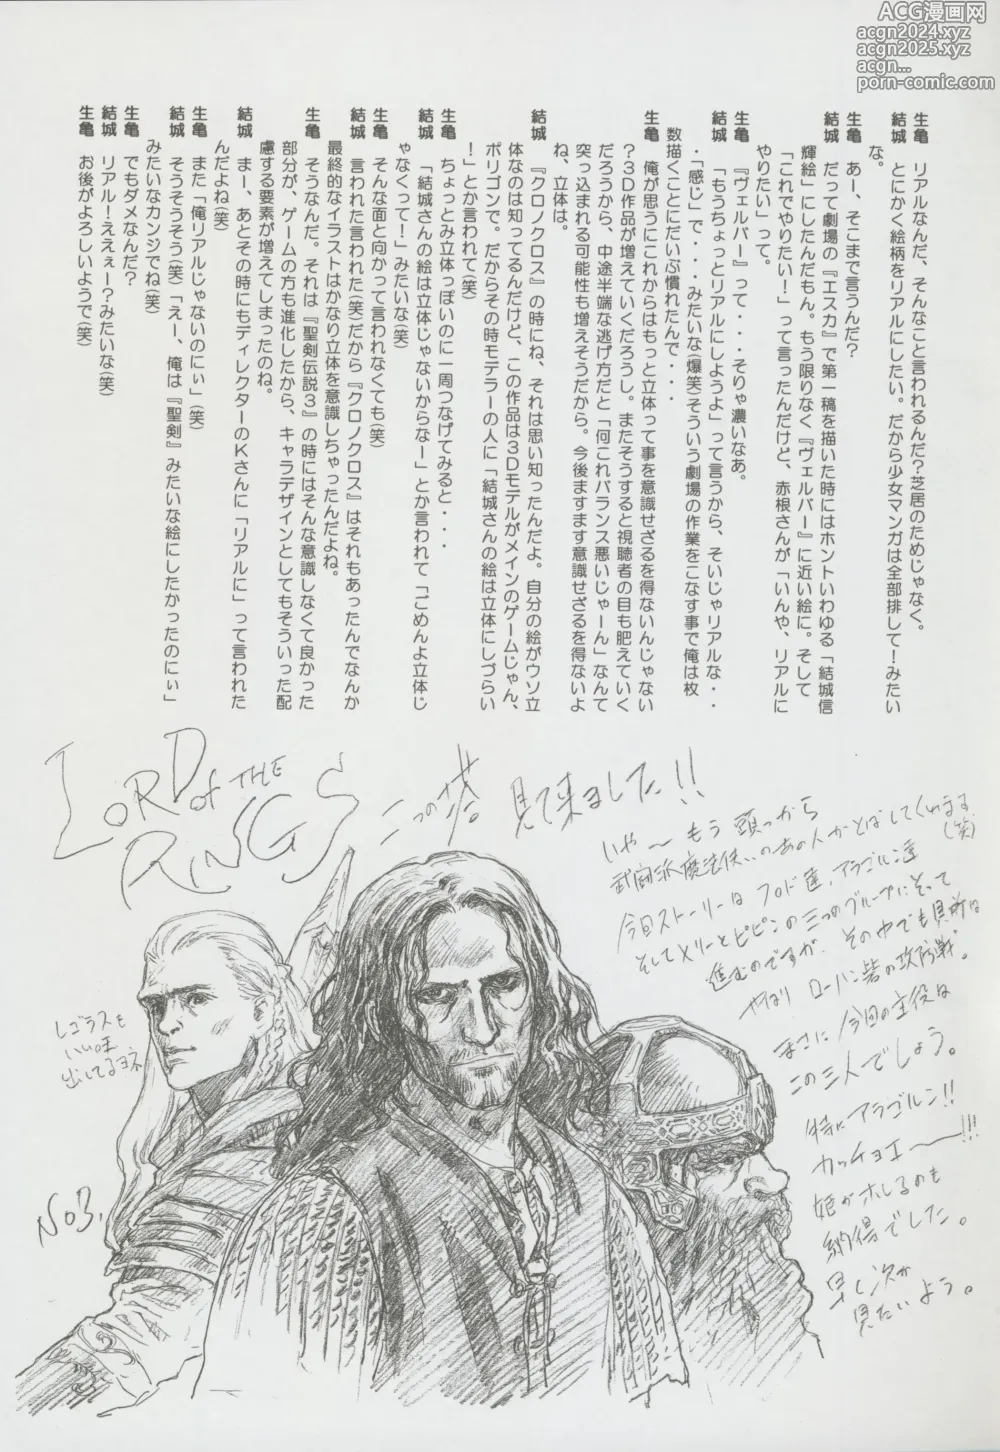 ACG漫画网
acgn2024.xyz
acgn2025.xyz
acgn...
porn-comic.com
生亀　リアルなんだ、そんなこと言われるんだ?芝居のためじゃなく。
結城　とにかく絵柄をリアルにしたい。だから少女マンガは全部排して!みたい
な。
生亀　あー、そこまで言うんだ?
結城　だって劇場の『エスカ』で第一稿を描いた時にはホントいわゆる「結城信
輝絵」にしたんだもん。もう限りなく『ヴェルバー』に近い絵に。そして
「これでやりたい!」って言ったんだけど、赤根さんが「いんや、リアルに
やりたい」って。
生亀　『ヴェルバー』って・・・そりゃ濃いなあ。
結城　「もうちょっとリアルにしようよ」って言うから、そいじゃリアルな・・
・「感じ」で・・・みたいな(爆笑)そういう劇場の作業をこなす事で俺は枚
数描くことにだいぶ慣れたんで・・・
生亀　俺が思うにこれからはもっと立体って事を意識せざるを得ないんじゃない
?3D作品が増えていくだろうし。またそうすると視聴者の目も肥えていく
だろうから、中途半端な逃げ方だと「何これバランス悪いじゃーん」なんて
突っ込まれる可能性も増えそうだから。今後ますます意識せざるを得ないよ
ね、立体は。
結城　『クロノクロス』の時にね、それは思い知ったんだよ。自分の絵がウソ立
体なのは知ってるんだけど、この作品は3Dモデルがメインのゲームじゃん、
ポリゴンで。だからその時モデラーの人に「結城さんの絵は立体にしづらい
!」とか言われて(笑)
生亀　ちょっとみ立体っぽいのに一周つなげてみると・・・
結城　「結城さんの絵は立体じゃないからなー」とか言われて「ごめんよ立体じ
ゃなくって!」みたいな(笑)
生亀　そんな面と向かって言われなくても(笑)
結城　言われた言われた(笑)だから『クロノクロス』はそれもあったんでなんか
最終的なイラストはかなり立体を意識しちゃったんだよね。
生亀　そうなんだ。それは『聖剣伝説3』の時にはそんな意識しなくて良かった
部分が、ゲームの方も進化したから、キャラデザインとしてもそういった配
慮する要素が増えてしまったのね。
結城　まー、あとその時にもディレクターのKさんに「リアルに」って言われた
んだよね(笑)
生亀　また「俺リアルじゃないのにぃ」(笑)
結城　そうそうそう(笑)「えー、俺は『聖剣』みたいな絵にしたかったのにぃ」
みたいなカンジでね(笑)
生亀　でもダメなんだ?
結城　リアル!ええぇー?みたいな(笑)
生亀　お後がよろしいようで(笑)
LORD of THE
RINGS
二つの塔 見て来ました!!
いや〜もう 頭っから
武闘派魔法使いのあの人かとばしてくれます(笑)
今回ストーリーは フロド達、アラゴルン達
そしてメリーとピピンの三つのグループにそって
進むのですが、その中でも見所は
やはり ローハン砦の攻防戦。
まさに 今回の主役は
この三人でしょう。
特にアラゴルン!!
カッチョエー〜!!!
姫がホレるのも
納得でした。
早く次が
見たいよう。
レゴラスも
いい味
出してるヨネ
N03.